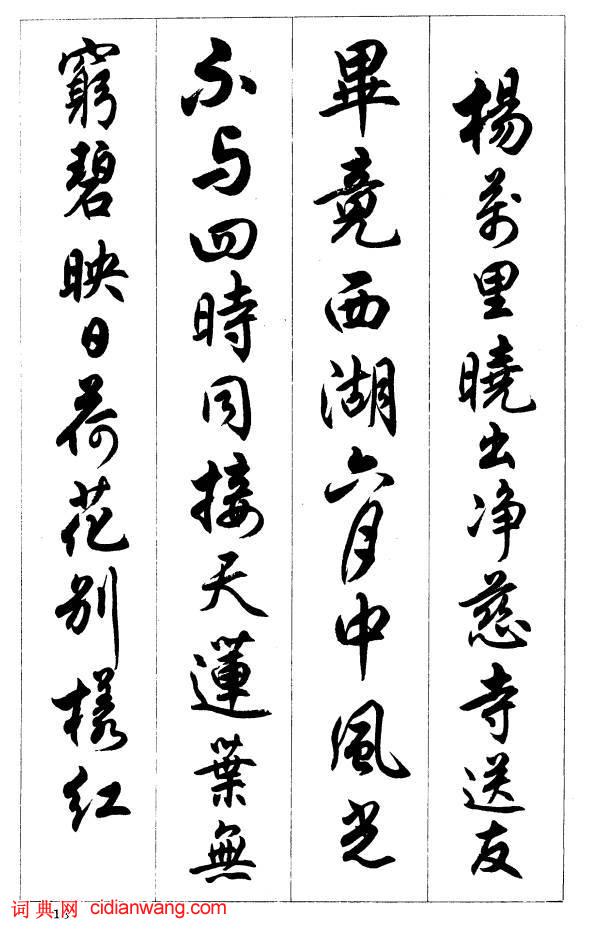 楊萬里曉出净慈寺送友
畢竟西湖六月中風光
不与四時同接天蓮葉無
窮碧映日荷花别樣紅
词典网 cidianwang.com